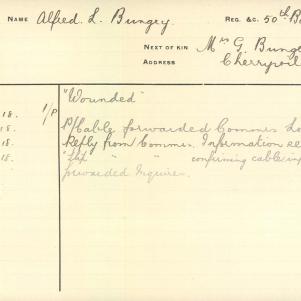 NAME Alfred. L. Bungey. REG. &C. 50th B
NEXT OF KIN Mrs G. Bunge
ADDRESS Cherrypoil
"Wounded"
18. 1/P P/Cable forwarded Commrs Lo
18. Reply from Commrs. Information re
18. " " confirming cable inf
forwarded Inquirer.